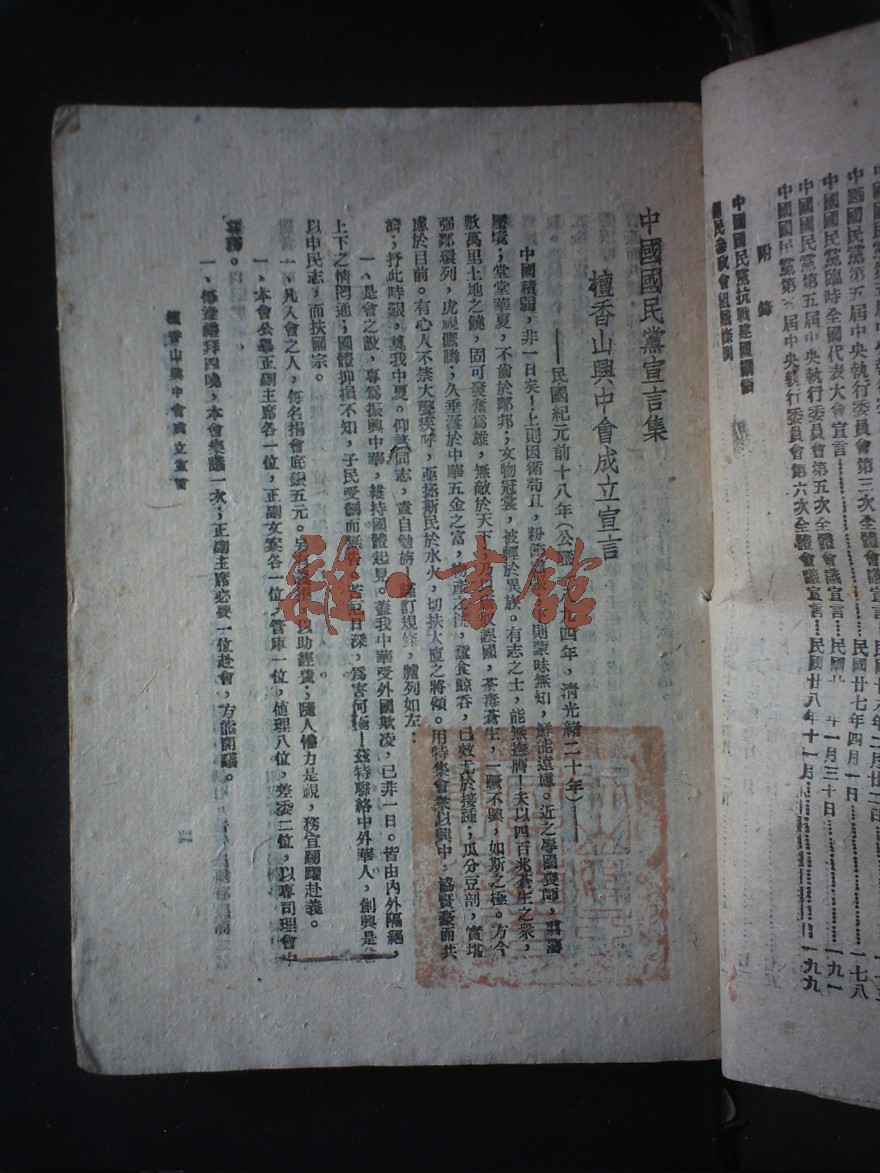 中國國民黨第五屆中央執行委員會第五次全體會議宣言
中國國民黨臨時全國代表大會宣言……民國廿七年四月一日……一七八
中國國民黨第五屆中央執行委員會第五次全體會議宣言……民國廿 年一月三十日……一九一
中國國民黨第五屆中央執行委員會第六次全體會議宣言……民國廿八年十一月……一九九
附錄
中國國民黨抗戰建國綱領
國民參政會組織條例
中國國民黨宣言集
檀香山興中會成立宣言
——民國紀元前十八年(公曆一八九四年,清光緒二十年)——
中國積弱,非一日矣!上則因循苟且,粉飾 則蒙昧無知,鮮能遠慮。近之辱國喪師,翦藩
壓境;堂堂華夏,不齒於鄰邦;文物冠裳,被輕於異族。有志之士,能無撫膺!夫以四百兆蒼生之衆,
數萬里土地之饒,固可發奮爲雄,無敵於天下; 誤國,荼毒蒼生,一蹶不興,如斯之極。方今
强鄰環列,虎視鷹瞵;久垂涎於中華五金之富,物產之 ,蠶食鯨吞,已效尤於接踵;瓜分豆剖,實堪
慮於目前。有心人不禁大聲疾呼,亟拯斯民於水火,切扶大廈之將傾。用特集會衆以興中,協賢豪而共
濟;抒此時艱,奠我中夏。仰諸同志,盡自勉旃!謹訂規條,臚列如左:
一、是會之設,專爲振興中華,維持國體起見。蓋我中華受外國欺凌,已非一日。皆由內外隔絕,
上下之情罔通;國體抑損不知,子民受制而無告。苦厄日深,爲害何極!茲特聯絡中外華人,創興是
以申民志,而扶國宗。
一、凡入會之人,每名捐會底銀五元。另 以助經費;隨人惟力是視,務宜踴躍赴義。
一、本會公舉正副主席各一位,正副文案各一位,管庫一位,值理八位,差委二位,以專司理會中
事務。
一、每逢禮拜四晚,本會集議一次;正副主席必要一位赴會,方能開議。
檀香山興中會成立宣言
一
雅·書館